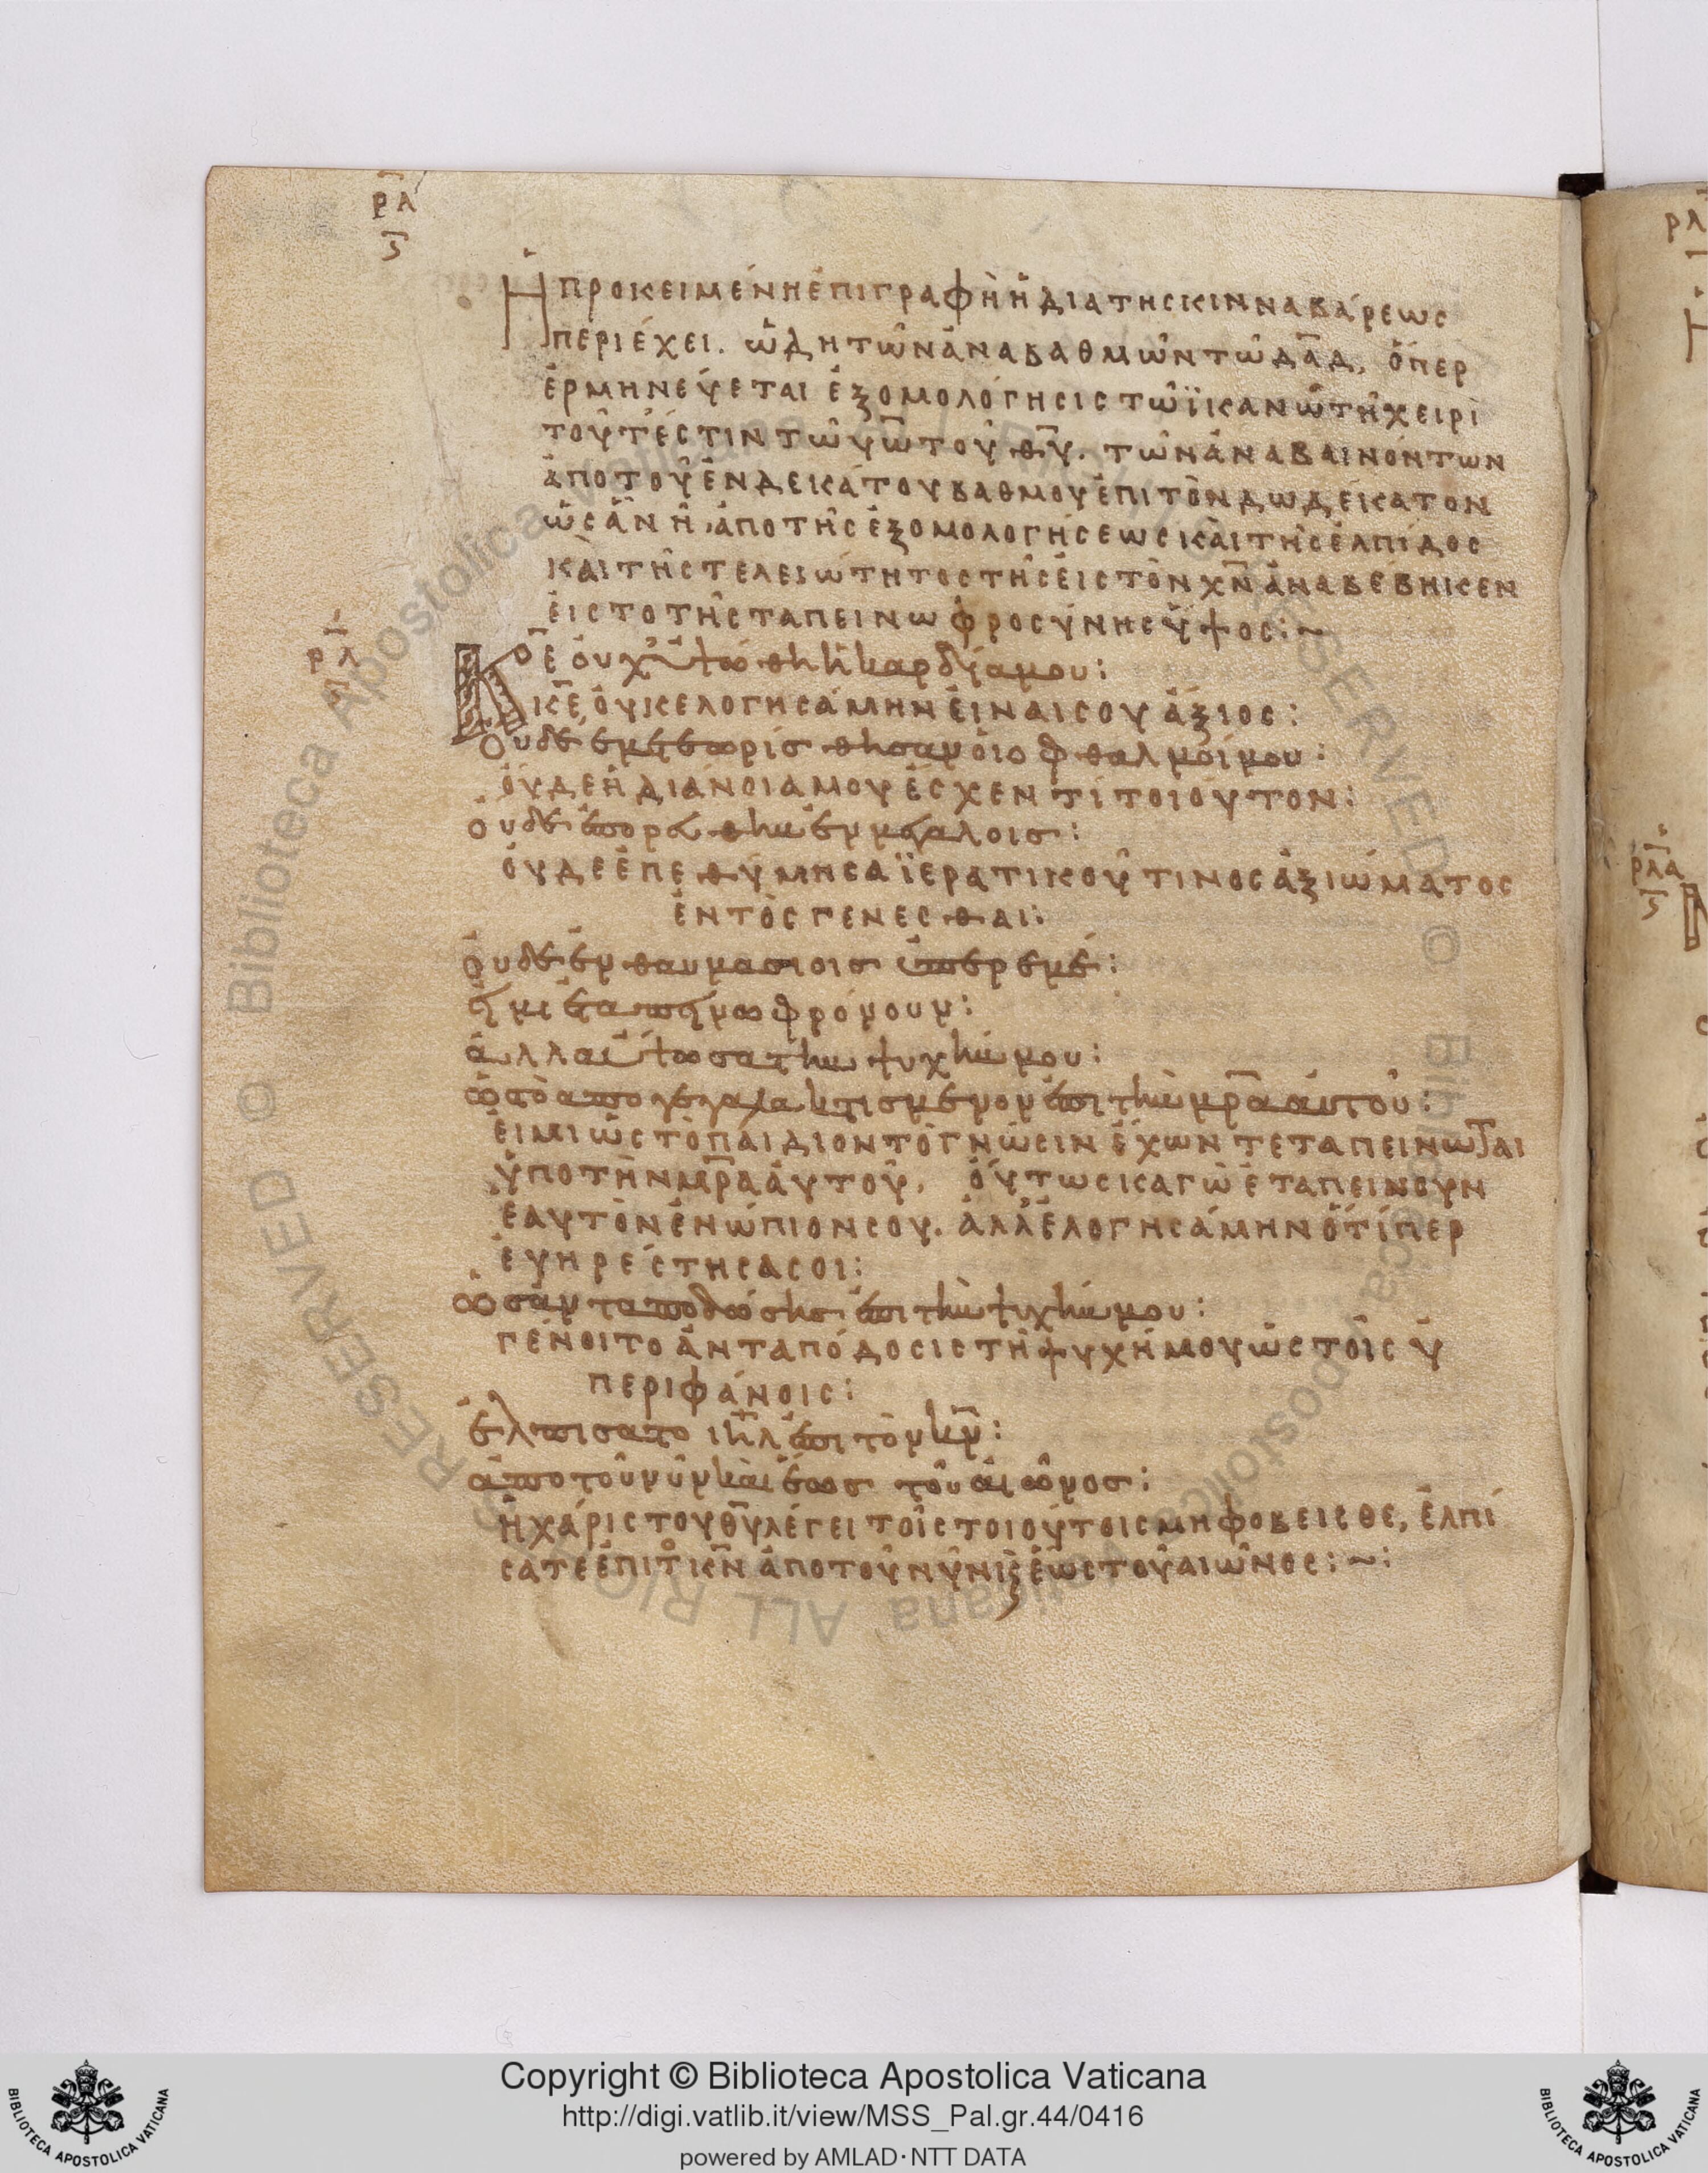 ρλ
ς
Ἡ προκειμένη ἐπιγραφὴ ἡ διὰ της κινναβάρεως
περιέχει. ὠδη τῶν ἀναβαθμῶν τῶ δᾱδ, ὅπερ
ἑρμηνεύεται ἐξομολόγησις τῶ ϊκανῶ τῆ χειρὶ
τουτέστιν τῶ υ̅ω̅ τοῦ θ̅υ̅. τῶν ἀναβαινόντων
ἀπο τοῦ ἑνδεικάτου βαθμοῦ ἐπι τὸν δωδείκατον
ὡς ἂν ἦ, ἀπο τῆς ἐξομολογήσεως καὶ τῆς ἐλπίδος
καὶ τῆς τελειώτητος τῆς εἰς τὸν χ̅ν̅ ἀναβέβηκεν
εἰς το τῆς ταπεινωφροσύνης ὕψος:~
ρλ
Κ̅ε̅ οὐχ ὑψώθη ἡ καρδία μου:
κ̅ε̅, οὐκ ελογησάμην εἶναι σου ἄξιος:
Ουδὲ ἐμετεωρίσθησαν οἱ οφθαλμοί μου:
οὐδε ἡ διάνοια μου ἔσχεν τί τοιοῦτον:
ουδὲ ἐπορεύθην ἐν μεγάλοις:
οὐδε ἐπεθύμησα ϊερατικοῦ τινος ἀξιώματος
ἐντὸς γενεσθαι:
ουδὲ ἐν θαυμασίοις ὑπερ εμέ:
εἰ μὴ ἐταπεινωφρόνουν:
ἀλλα ὕψωσα τὴν ψυχήν μου:
ὡς τὸ απογεγαλακτισμένον ἐπι τὴν μ̅ρ̅α̅ αὐτοῦ:
εἰμι ὡς τὸ παιδιον τὸ γνώσιν ἔχων τεταπεινωται
ὑπο τὴν μ̅ρ̅α̅ αὐτοῦ, οὕτως καγὼ ἐταπεινουν
ἑαυτὸν ἐνώπιον σου. ἀλλ' ἐλογησάμην ὅτίπερ
ἐυηρέστησα σοι:
ὡς ἀνταποδώσης ἐπι τὴν ψυχήν μου:
γένοιτο ἀνταπόδοσις τῆ ψυχή μου ὡς τοῖς ὑ
περιφάνοις:
ἐλπισάτω ι̅η̅λ̅ ἐπι τὸν κ̅ν̅:
ἀπο τοῦ νῦν καὶ ἕως τοῦ αἰῶνος:
ἡ χάρις του θ̅υ̅ λέγει τοῖς τοιούτοις μη φοβεισθε, ἐλπί
σατε ἐπι τ̊ κ̅ν̅ ἀπο τοῦ νῦν κ̀ ἕως τοῦ αιῶνος:~:
ρλ
ρλα
ς
Copyright © Biblioteca Apostolica Vaticana
http://digi.vatlib.it/view/MSS_Pal.gr.44/0416
powered by AMLAD·NTT DATA
BIBLIOTECA APOSTOLICA VATICANA
BIBLIOTECA APOSTOLICA VATICANA